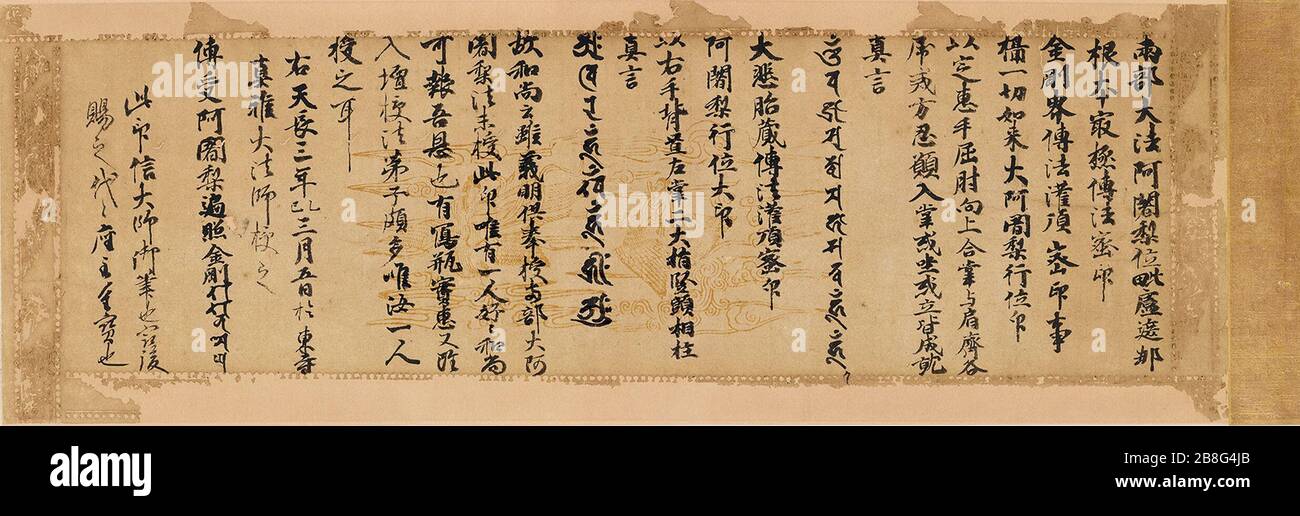 両部大法阿闍梨位毗盧遮那
根本寂極傳法密印
金剛界傳法灌頂密印事
攝一切如来大阿闍梨行位印
以定惠手屈肘向上合掌与肩齊
忍願入掌或坐或立皆成就
真言
大悲胎蔵傳法灌頂密印
阿闍梨行位大印
以右手背置左掌二大指竪頭相柱
真言
故和尚云雖義明供奉授両部大阿
闍梨法未授此印唯有一人好々和尚
可報吾恩也有寫瓶實惠又
入壇授法弟子頗多唯汝一人
授之耳
右天長三年 三月五日於東寺
真雅大法師授之
傳受阿闍梨遍照金剛
此印信大師御筆也
賜之代々座主重寶也
alamy
Image ID: 2B8G4JB
www.alamy.com